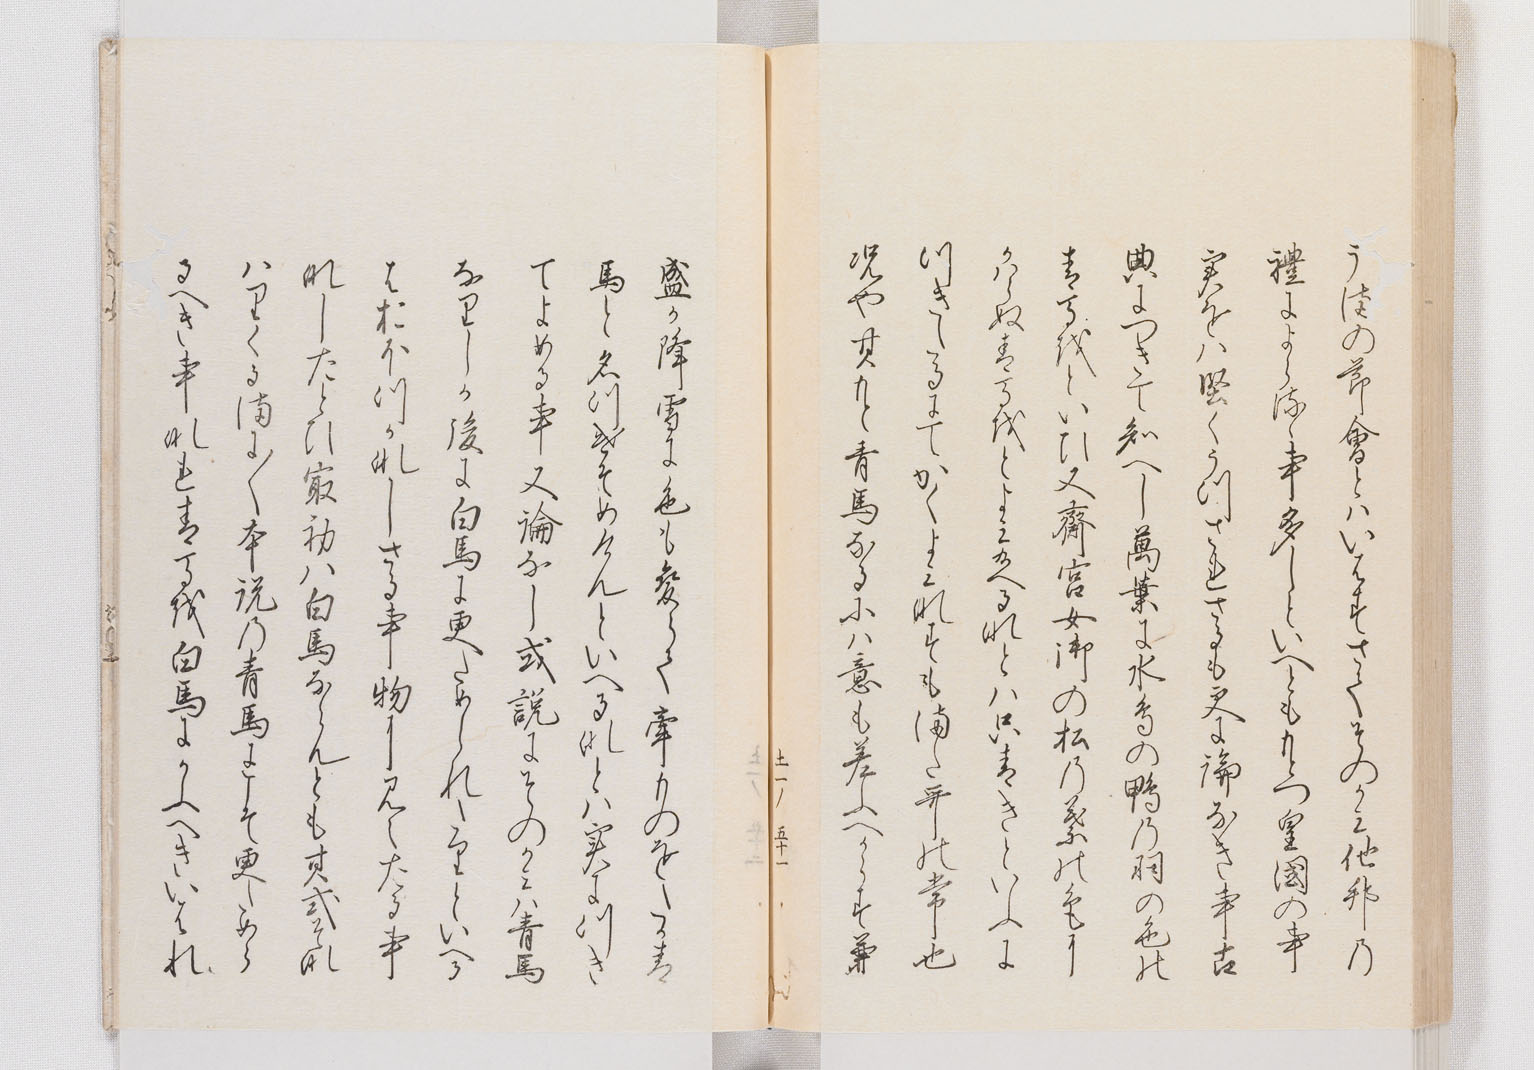 う諸の節會とハいへとさてそのかミ他邦の
禮によらる事多しといへとももとつ皇國の事
実をハ堅くうつされさるも更に論なき事古
典につきて知へし萬葉に水鳥の鴨乃羽の色の
青馬といひ又齋宮女御の松乃葉の色に
かハらぬ青馬をとよミ給へるなとハ只青きといふに
つきてるにてかくよミなすも滿た哥の常也
况や其もと青馬なる小ハ意も差ふへからす兼
盛か降雪に色も變らて牽ものをたか青
馬と名つけそめけんといへるなとハ実につき
てよめる事又論なし或説にそのかミハ青馬
なりしか後に白馬に更ためられたりといへる
はおほつかなしさる事物に見えたる事
なしたとひ最初ハ白馬ならんとも其式それ
ハりくる滿に〱本説乃青馬にこそ更ためら
るへき事なれ青馬を白馬にかふへきいはれ
土一ノ 五十一